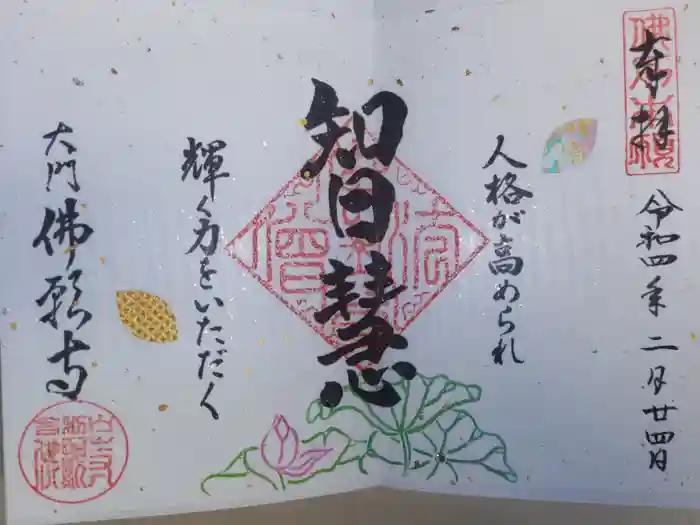 奉拝
令和四年二月廿四日
人格が高められ
智慧
輝く力をいただく
大門
佛願寺